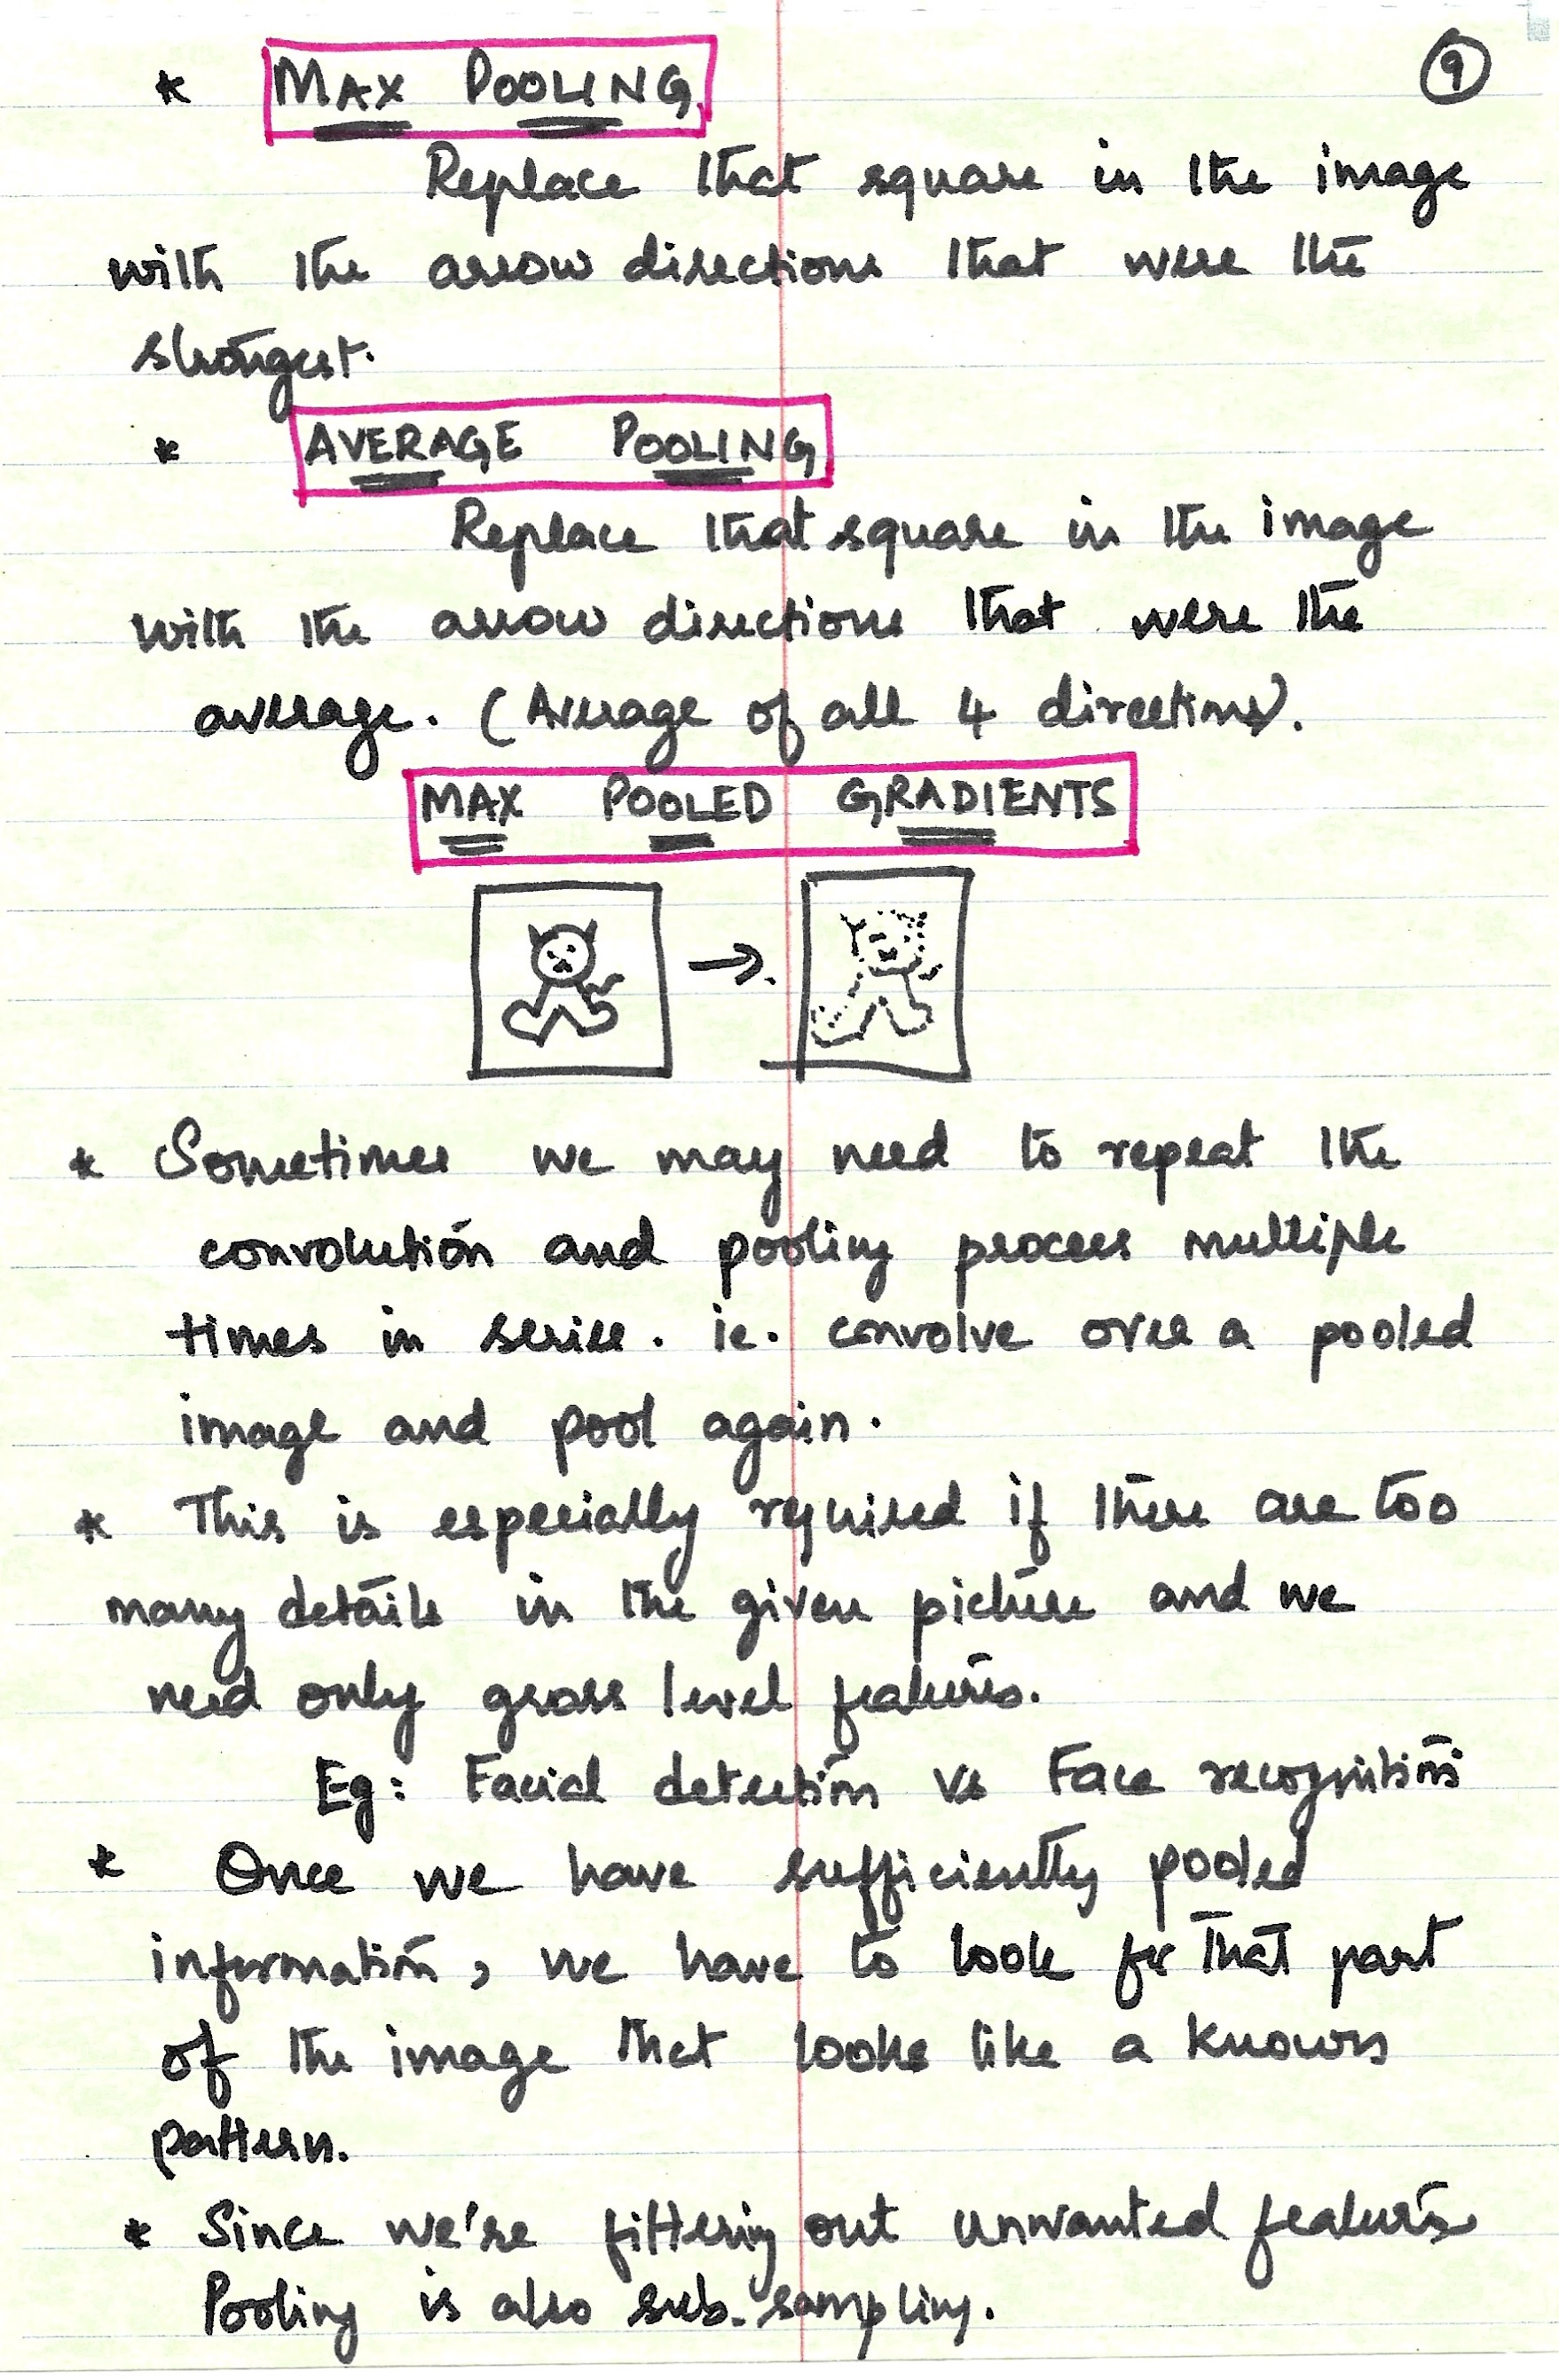 * MAX POOLING
9
Replace that square in the image
with the arrow directions that were the
strongest.
* AVERAGE POOLING
Replace that square in the image
with the arrow directions that were the
average. (Average of all 4 directions).
MAX POOLED GRADIENTS
* Sometimes we may need to repeat the
convolution and pooling process multiple
times in series. ie. convolve over a pooled
image and pool again.
* This is especially required if there are too
many details in the given picture and we
need only gross level features.
Eg: Facial detection vs Face recognition
* Once we have sufficiently pooled
information, we have to look for that part
of the image that looks like a known
pattern.
* Since we're filtering out unwanted features
Pooling is also sub-sampling.